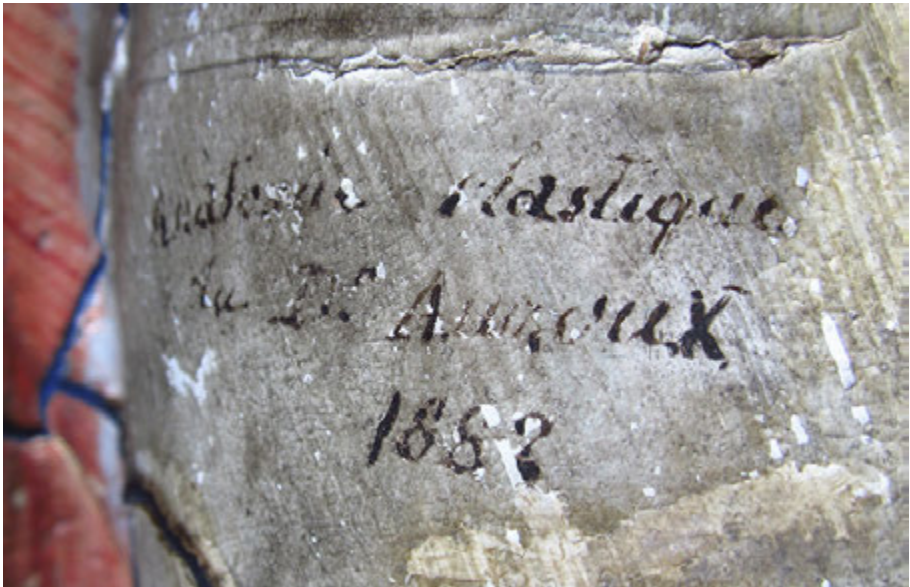 Anatomie Plastique
du Dr Auzoux
1882